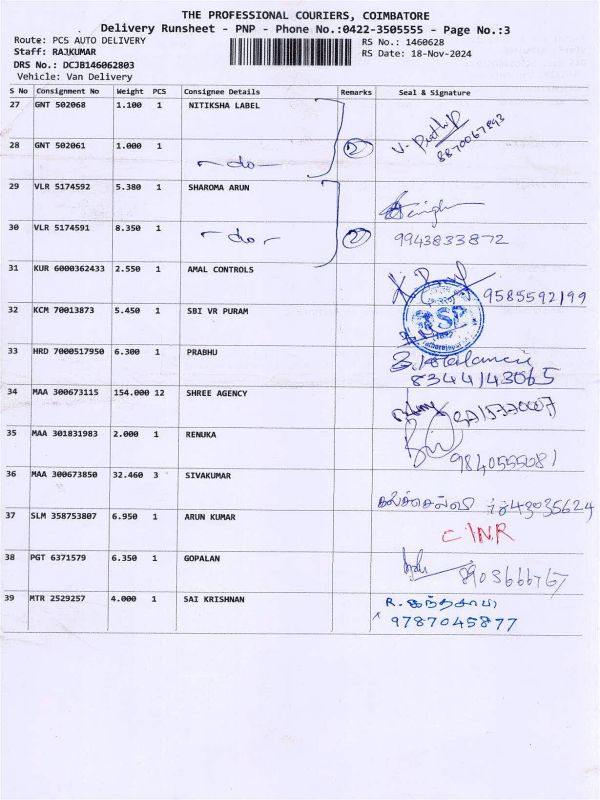 THE PROFESSIONAL COURIERS, COIMBATORE
Delivery Runsheet - PNP - Phone No.:0422-3505555 - Page No.:3
Route: PCS AUTO DELIVERY RS No.: 1460628
Staff: RAJKUMAR RS Date: 18-Nov-2024
DRS No.: DCJB146062803
Vehicle: Van Delivery
S No Consignment No Weight PCS Consignee Details Remarks Seal & Signature
27 GNT 502068 1.100 1 NITIKSHA LABEL
28 GNT 502061 1.000 1 - do - 2 8870067893
29 VLR 5174592 5.380 1 SHAROMA ARUN
30 VLR 5174591 8.350 1 - do - 2 9943833872
31 KUR 6000362433 2.550 1 AMAL CONTROLS 9585592199
32 KCM 70013873 5.450 1 SBI VR PURAM
33 HRD 7000517950 6.300 1 PRABHU 8344143065
34 MAA 300673115 154.000 12 SHREE AGENCY
35 MAA 301831983 2.000 1 RENUKA 9840555081
36 MAA 300673850 32.460 3 SIVAKUMAR
37 SLM 358753807 6.950 1 ARUN KUMAR C/NR
38 PGT 6371579 6.350 1 GOPALAN
39 MTR 2529257 4.000 1 SAI KRISHNAN R. கந்தசாமி
9787045877